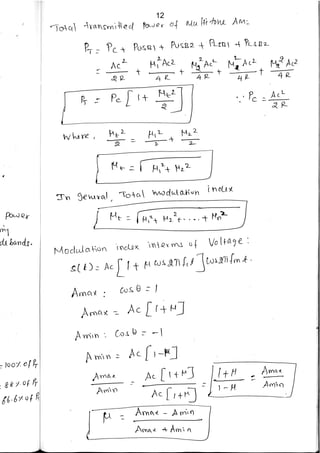 12
Total transmitted Power of Multitone AM:
P_T = Pc + PUSB1 + PUSB2 + PLSB1 + PLSB2
= Ac²/2R + μ₁²Ac²/4R + μ₂²Ac²/4R + μ₁²Ac²/4R + μ₂²Ac²/4R
P_T = Pc [1 + μt²/2] ∵ Pc = Ac²/2R
Where, μt²/2 = μ₁²/2 + μ₂²/2
μt = √μ₁² + μ₂²
In general, Total modulation index
power
μt = √μ₁² + μ₂² + .... + μn²
de bands.
Modulation index interms of Voltage :
s(t) = Ac [1 + μ cos 2π fm t] cos 2π fm t.
Amax : cos θ = 1
Amax = Ac [1+μ]
Amin : cos θ = -1
Amin = Ac [1-μ]
= 100% of P_T
Amax/Amin = Ac [1+μ]/Ac [1+μ] = 1+μ/1-μ = Amax/Amin
66.6% of P
μ = Amax - Amin/Amax + Amin